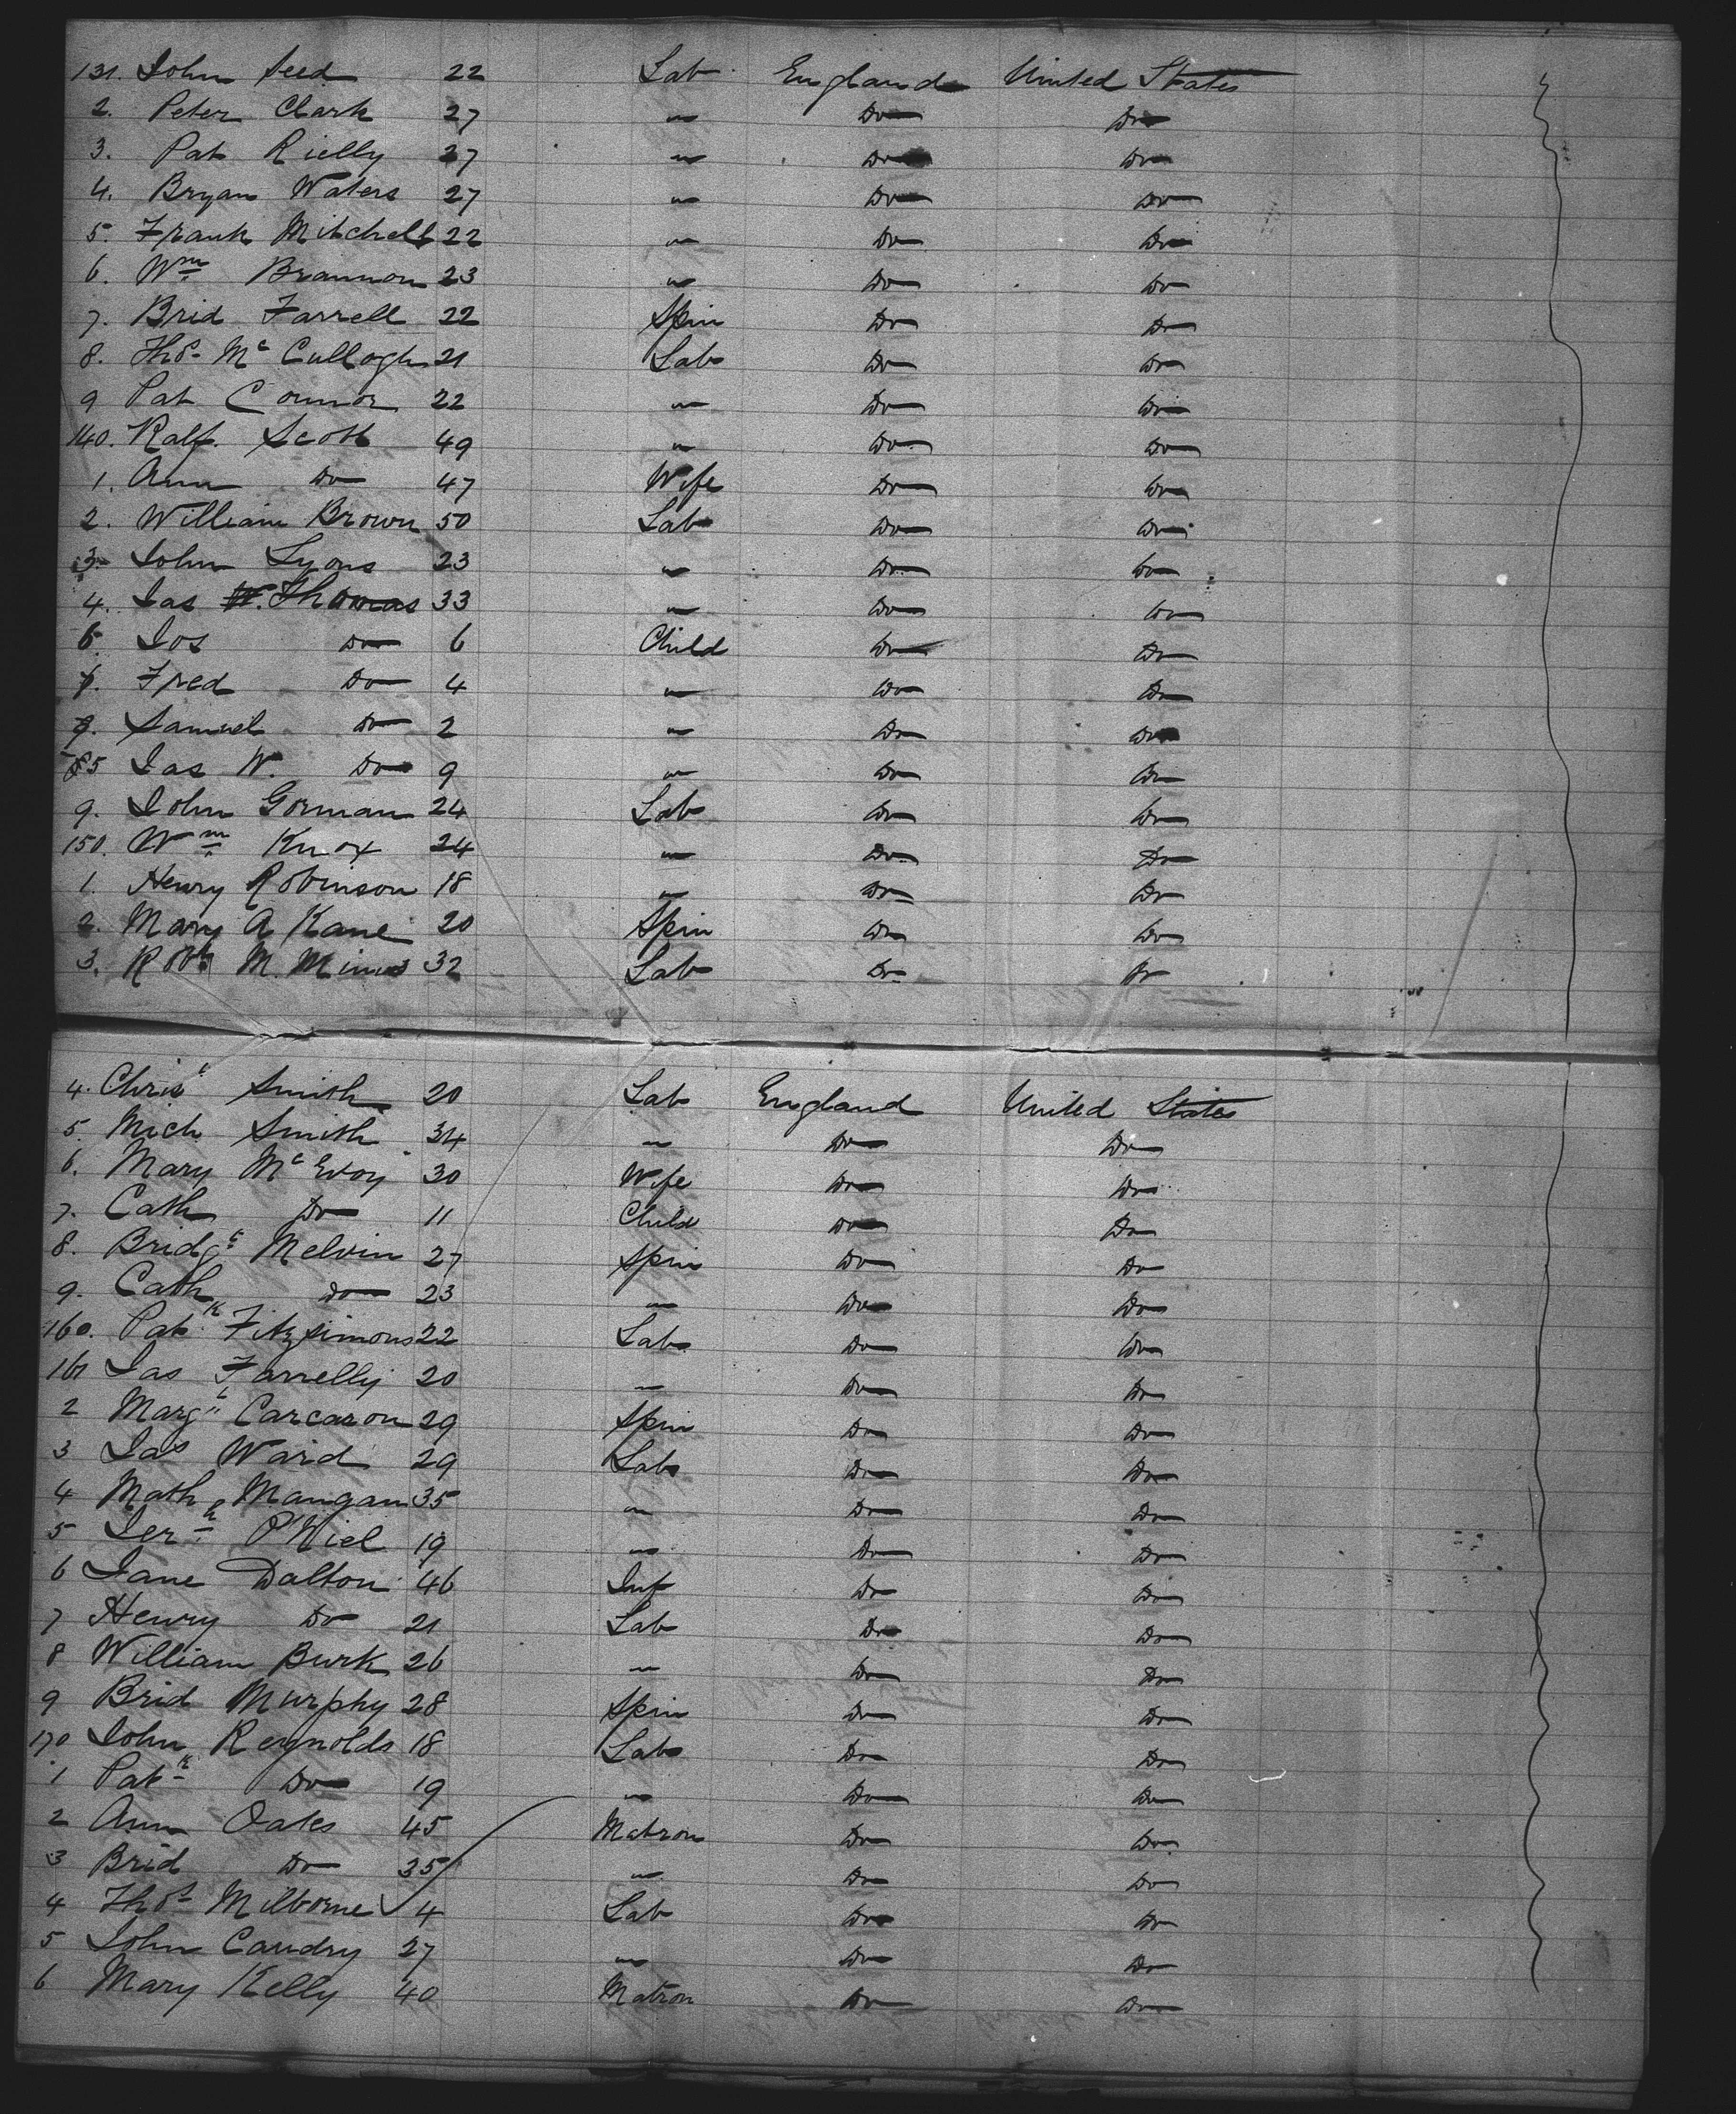 131. John Seed 22 Lab England United States
2. Peter Clark 27 " Do Do
3. Pat Rielly 27 " Do Do
4. Bryan Waters 27 " Do Do
5. Frank Mitchell 22 " Do Do
6. Wm Brannon 23 " Do Do
7. Brid Farrell 22 Spin Do Do
8. Thos McCullogh 21 Lab Do Do
9 Pat Connor 22 " Do Do
140. Ralf. Scott 49 " Do Do
1. Ann Do 47 Wife Do Do
2. William Brown 50 Lab Do Do
3. John Lyons 23 " Do Do
4. Jas W. Thomas 33 " Do Do
5. Jos Do 6 Child Do Do
6. Fred Do 4 " Do Do
7. Samuel Do 2 " Do Do
5 Jas W. Do 9 " Do Do
9. John Gorman 24 Lab Do Do
150. Wm Knox 24 " Do Do
1. Henry Robinson 18 " Do Do
2. Mary A Kane 20 Spin Do Do
3. Robt M. 32 Lab Do Do
4. Chrisr Smith 20 Lab England United States
5. Mich Smith 34 " Do Do
6. Mary McEvoy 30 Wife Do Do
7. Cath Do 11 Child Do Do
8. Bridgt Melvin 27 Spin Do Do
9. Cath Do 23 " Do Do
160. Patk Fitzsimons 22 Lab Do Do
161 Jas Farrelly 20 " Do Do
2 Margt Carcaron 29 Spin Do Do
3 Jas Ward 29 Lab Do Do
4 Math Mangan 35 " Do Do
5 Jerh O'Niel 19 " Do Do
6 Jane Dalton 46 Do Do
7 Henry Do 21 Lab Do Do
8 William Burk 26 " Do Do
9 Brid Murphy 28 Spin Do Do
170 John Reynolds 18 Lab Do Do
1 Patk Do 19 " Do Do
2 Ann Oates 45 Matron Do Do
3 Brid Do 35 " Do Do
4 Thos Milborne 4 Lab Do Do
5 John Candry 27 " Do Do
6 Mary Kelly 40 Matron Do Do